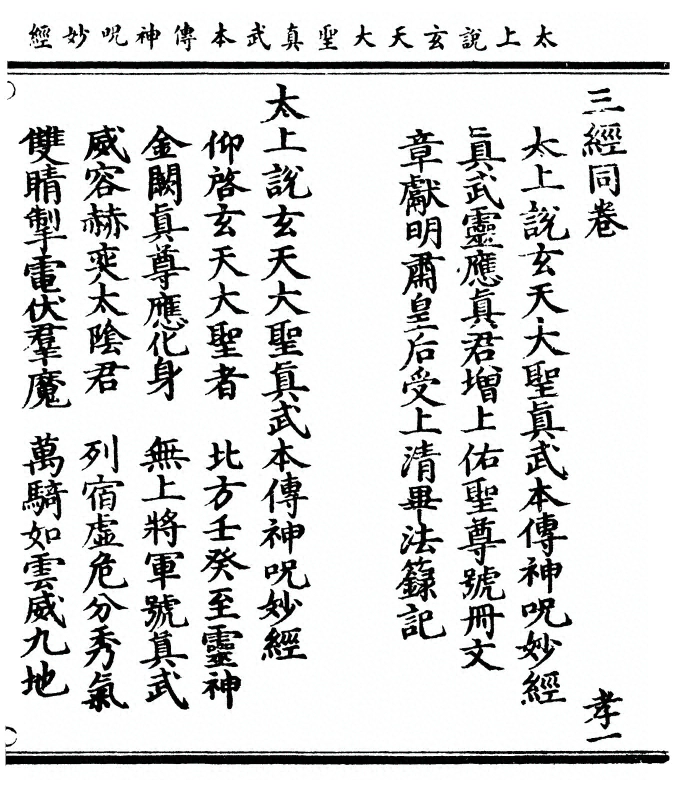 太上說玄天大聖真武本傳神呪妙經
三經同卷 孝一
太上說玄天大聖眞武本傳神呪妙經
眞武靈應眞君增上佑聖尊號冊文
章獻明肅皇后受上清畢法籙記
太上說玄天大聖眞武本傳神呪妙經
仰啓玄天大聖者 北方壬癸至靈神
金闕眞尊應化身 無上將軍號眞武
威容赫奕太陰君 列宿虛危分秀氣
雙睛掣電伏羣魔 萬騎如雲威九地